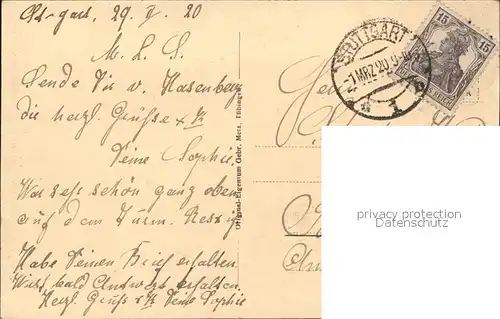 St-gart, 29. II. 20
M. L. S.
Sende Dir v. Hasenberg
die herzl. Grüße + K
Deine Sophie.
War sehr schön ganz oben
auf dem Turm.
Habe Deinen Brief erhalten
Wirst bald Antwort erhalten
Herzl. Gruß + K Deine Sophie
Original-Eigentum Gebr. Metz, Tübingen
STUTTGART
-1 MRZ 20 9-
15 15
DEUTSCHES REICH
privacy protection
Datenschutz